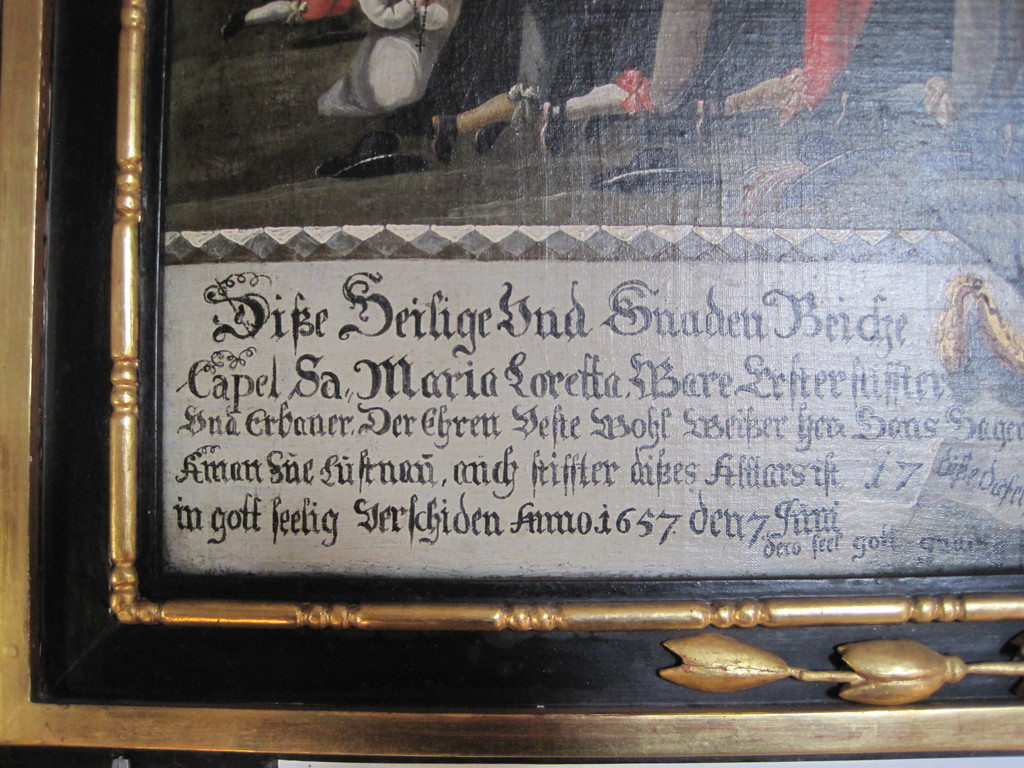 Diße Heilige Vnd Gnaden Reiche
Capel Sa,, Maria Loretta. Ware Erster stiffter
Vnd Erbauer. Der Ehren Veste Wohl Weißer her Hans Hagen
Aman Zue Lustnau, auch stiffter dißes Altars ist
in gott seelig Verschiden Anno. 1657. den 7. Juni
dero seel gott
17 diße Dafel